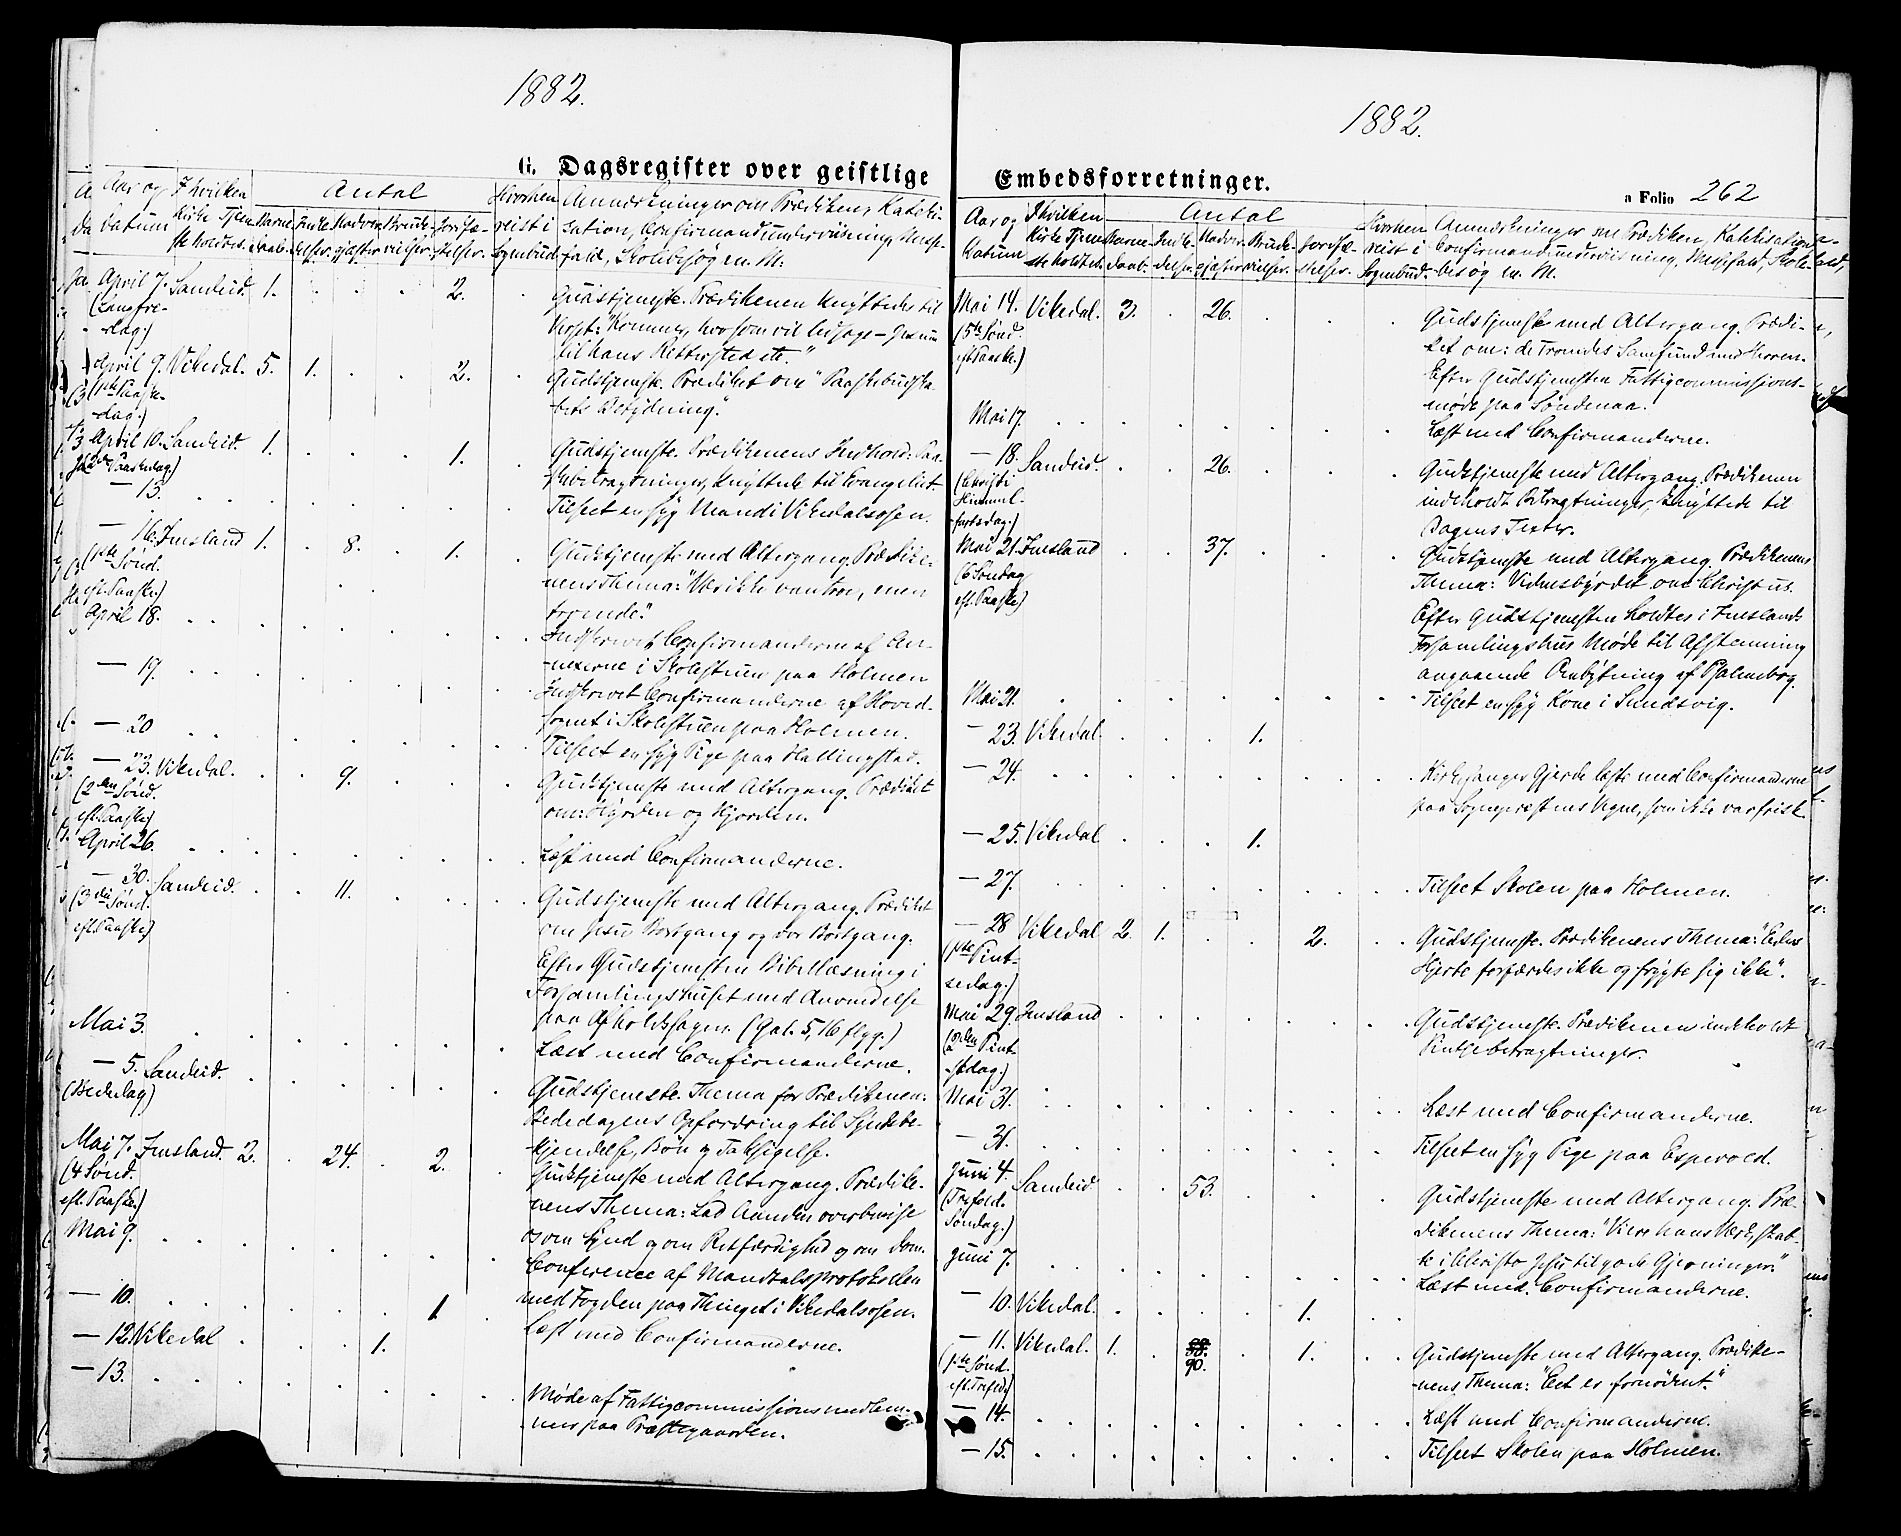 1882.
G. Dagsregister over geistlige
Aar og Datum
I hvilken Kirke Tjeneste holdtes.
Antal
Barnedaab.
Indledelser.
Nadvergjæster
Brudevielser.
Jordfæstelser.
Hvorhen reist i Sognebud.
Anmærkninger om Prædiken, Katechisation, Confirmandundervisning, Messefald, Skolebesøg m. M.
April 7. Sandeid. 1. . . . 2. . Gudstjeneste. Prædikenen knyttedes til
(Langfredag) Korset: "Kommer, hvo som vil ledsage - Jesum
til hans Rettersted etc."
April 9. Vikedal. 5. 1. . . 2. Gudstjeneste. Prædiket om "Paaskebudska-
(1ste Paaskedag.) bets Betydning."
April 10. Sandeid. 1. . . . 1. . Gudstjeneste. Prædikenens Indhold: Paa-
(2den Paaskedag) skebetragtninger, knyttede til Evangeliet.
— 13. . . . . . . Tilseet en syg Mand i Vikedalsosen.
— 16. Imsland 1. . 8. . 1. . Gudstjeneste med Altergang. Prædike-
(1ste Sønd. nens Thema: "Vær ikke vantro, men
eft. Paaske) troende".
April 18. . . . . . . Indskrevet Confirmanderne af An-
nexerne i Skolestuen paa Holmen
— 19. . . . . . . Indskrevet Confirmanderne af Hoved-
sognet i Skolestuen paa Holmen.
— 20 . . . . . . Tilseet en syg Pige paa Hallingstad.
— 23. Vikedal. . . 9. . . . Gudstjeneste med Altergang. Prædiket
(2den Sønd. om: Hyrden og Hjorden.
eft. Paaske)
April 26. . . . . . . Læst med Confirmanderne.
— 30. Sandeid. . . 11. . . . Gudstjeneste med Altergang. Prædiket
(3die Sønd. om Jesu Bortgang og vor Bortgang.
eft. Paaske) Efter Gudstjenesten Bibellæsning i
Forsamlingshuset med Anvendelse
paa Afholdssagen. (Gal. 5, 16 flgg.)
Mai 3. . . . . . . Læst med Confirmanderne.
— 5. Sandeid. . . . . . . Gudstjeneste. Thema for Prædikenen:
(Bededag) Bededagens Opfordring til Syndsbe-
kjendelse, Bøn og Taksigelse.
Mai 7. Imsland. 2. . 24. . 2. . Gudstjeneste med Altergang. Prædike-
(4 Sønd. nens Thema: Lad Aanden overbevise
eft. Paaske.) os om Synd og om Retfærdighed og om Dom.
Mai 9. . . . . . . Conference af Mandtalsprotokollen
med Fogden paa Thinget i Vikedalsosen.
— 10. . . . . 1. . Læst med Confirmanderne.
— 12. Vikedal . . . 1.
— 13. . . . . . . Møde af Fattigcommissionsmedlem-
mer paa Præstegaarden.
1882.
Embedsforretninger.
a Folio 262
Aar og Datum
I hvilken Kirke Tjeneste holdtes.
Antal
Barnedaab.
Indledelser.
Nadvergjæster
Brudevielser.
Jordfæstelser.
Hvorhen reist i Sognebud.
Anmærkninger om Prædiken, Katekisation, Confirmandundervisning, Messefald, Skolebesøg m. M.
Mai 14. Vikedal. 3. . 26. . . . Gudstjeneste med Altergang. Prædi-
(5te Sønd. ket om: de Troendes Samfund med Herren.
eft. Paaske.) Efter Gudstjenesten Fattigcommissions-
møde paa Søndenaa.
Mai 17. . . . . . . Læst med Confirmanderne.
— 18. Sandeid. . . 26. . . . Gudstjeneste med Altergang. Prædikenen
(Christi indeholdt Betragtninger, knyttede til
Himmelfartsdag.) Dagens Texter.
Mai 21. Imsland . . 37. . . . Gudstjeneste med Altergang. Prædikenens
(6 Søndag Thema: Vidnesbyrdet om Christus.
eft. Paaske) Efter Gudstjenesten holdtes i Imslands
Forsamlingshus Møde til Afstemning
angaaende Ombytning af Psalmebog.
Mai 21. . . . . . . Tilseet en syg Kone i Sundsvig.
— 23. Vikedal. . . . 1.
— 24. . . . . . . Kirkesanger Gjerde læste med Confirmanderne
paa Sognepræstens Vegne, som ikke var frisk.
— 25. Vikedal . . . 1.
— 27. . . . . . . Tilseet Skolen paa Holmen.
— 28 Vikedal 2. 1. . . 2. . Gudstjeneste. Prædikenens Thema: "Eders
(1ste Pintsedag.) Hjerte forfærdes ikke og frygte sig ikke".
Mai 29. Imsland . . . . . . Gudstjeneste. Prædikenen indeholdt
(2den Pintsedag.) Pintsebetragtninger.
Mai 31. . . . . . . Læst med Confirmanderne.
— 31. . . . . . . Tilseet en syg Pige paa Espevold.
Juni 4. Sandeid . . 53. . . . Gudstjeneste med Altergang. Præ-
(Trefold. dikenens Thema: "Vi ere hans Værk, skab-
Søndag.) te i Christo Jesu til gode Gjerninger."
Juni 7. . . . . . . Læst med Confirmanderne.
— 10. Vikedal. . . . . 1. .
— 11. Vikedal. 1. . 90. . 1. . Gudstjeneste med Altergang. Prædike-
(1ste Sønd. nens Thema: "Eet er fornødent."
eft. Trefold.)
— 14. . . . . . . Læst med Confirmanderne.
— 15. . . . . . . Tilseet Skolen paa Holmen.